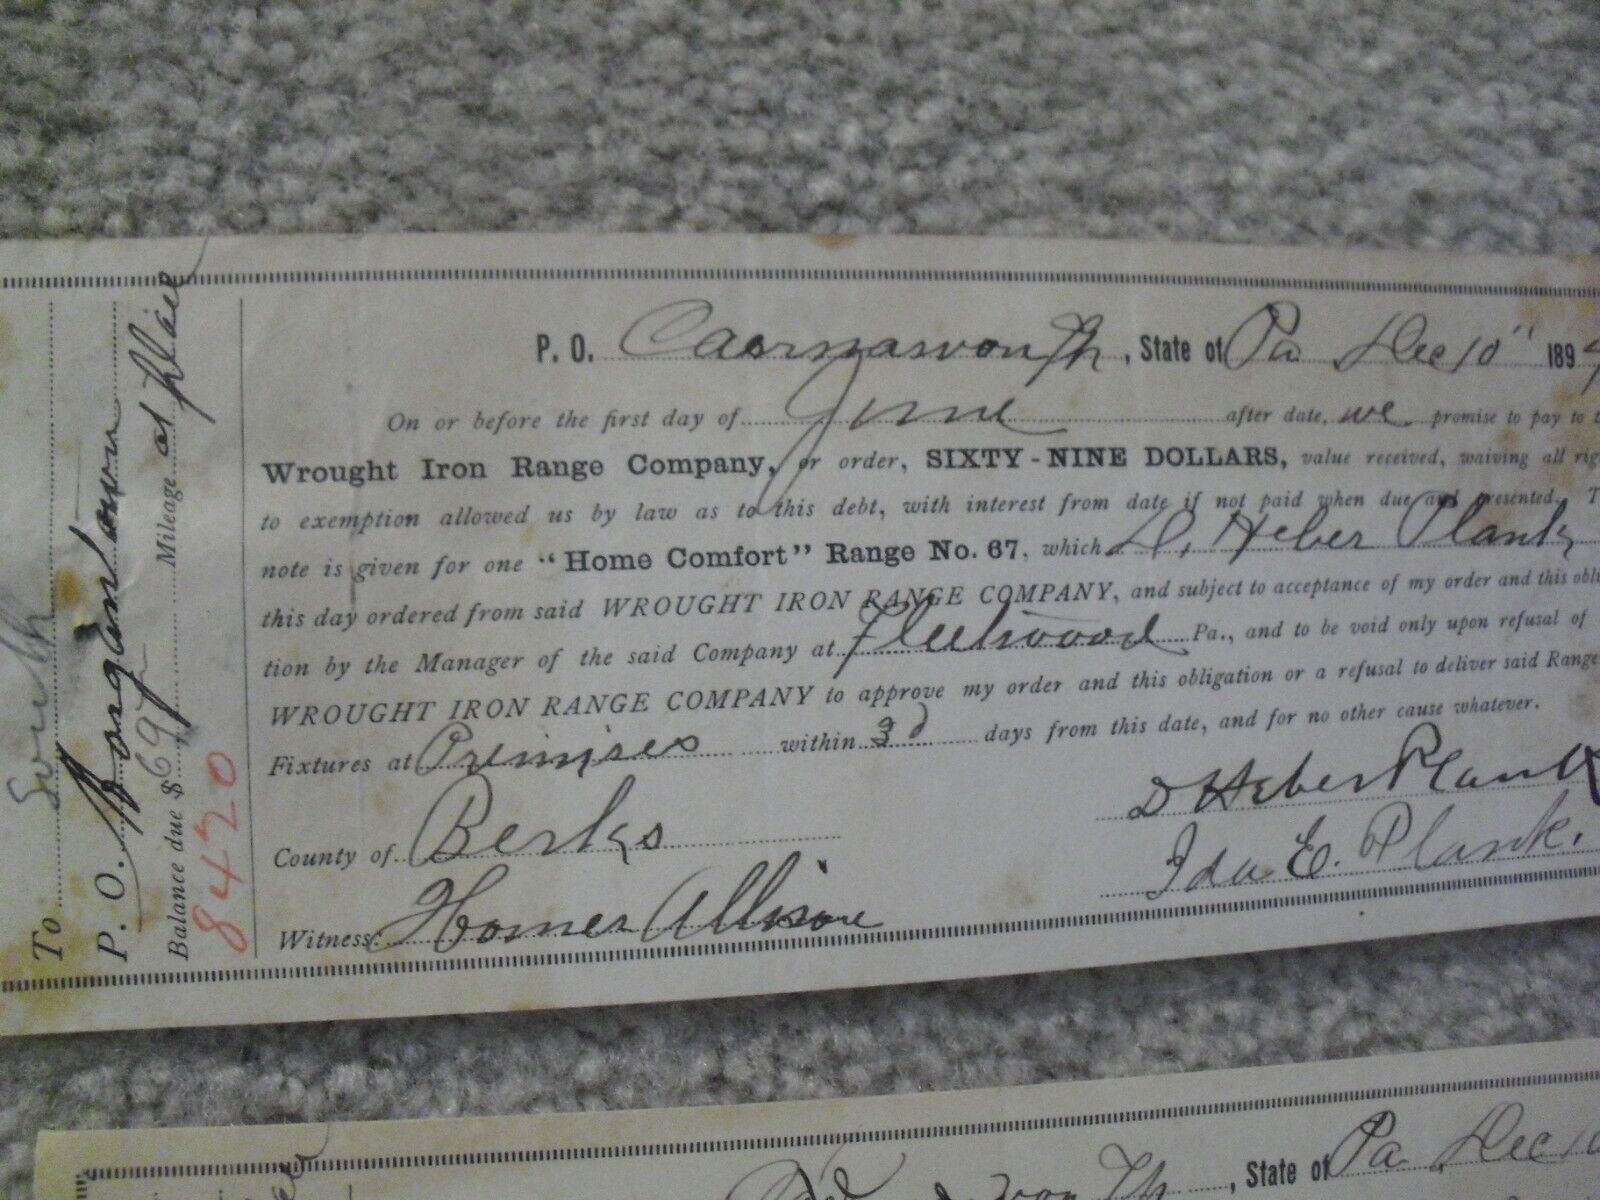 To South
P. O. Morgantown
Mileage at place
Balance due $69
8420
P. O. Caernavonth, State of Pa Dec 10" 1894
On or before the first day of June after date, we promise to pay to
Wrought Iron Range Company, or order, SIXTY-NINE DOLLARS, value received, waiving all
to exemption allowed us by law as to this debt, with interest from date if not paid when due and presented.
note is given for one "Home Comfort" Range No. 67, which D. Heber Plank
this day ordered from said WROUGHT IRON RANGE COMPANY, and subject to acceptance of my order and this obli
tion by the Manager of the said Company at Fleetwood Pa., and to be void only upon refusal of
WROUGHT IRON RANGE COMPANY to approve my order and this obligation or a refusal to deliver said Range
Fixtures at Premises within 30 days from this date, and for no other cause whatever.
D Heber Plank
County of Berks
Ida E. Plank.
Witness: Homer Allison
State of Pa Dec 10